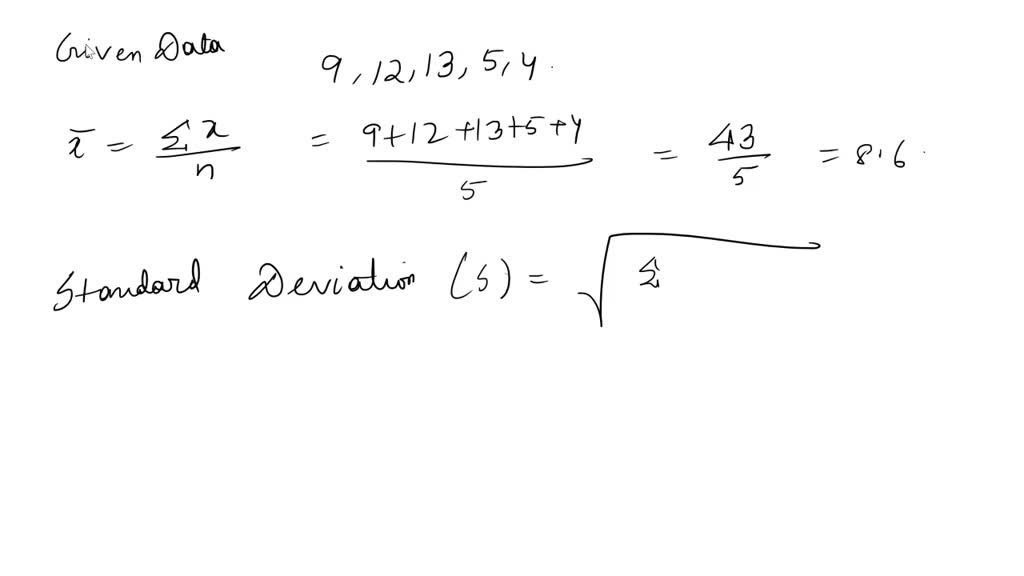 Given Data
9, 12, 13, 5, 4.
x̄ = Σx/n = 9+12+13+5+4/5 = 43/5 = 8.6.
Standard Deviation (S) = √Σ